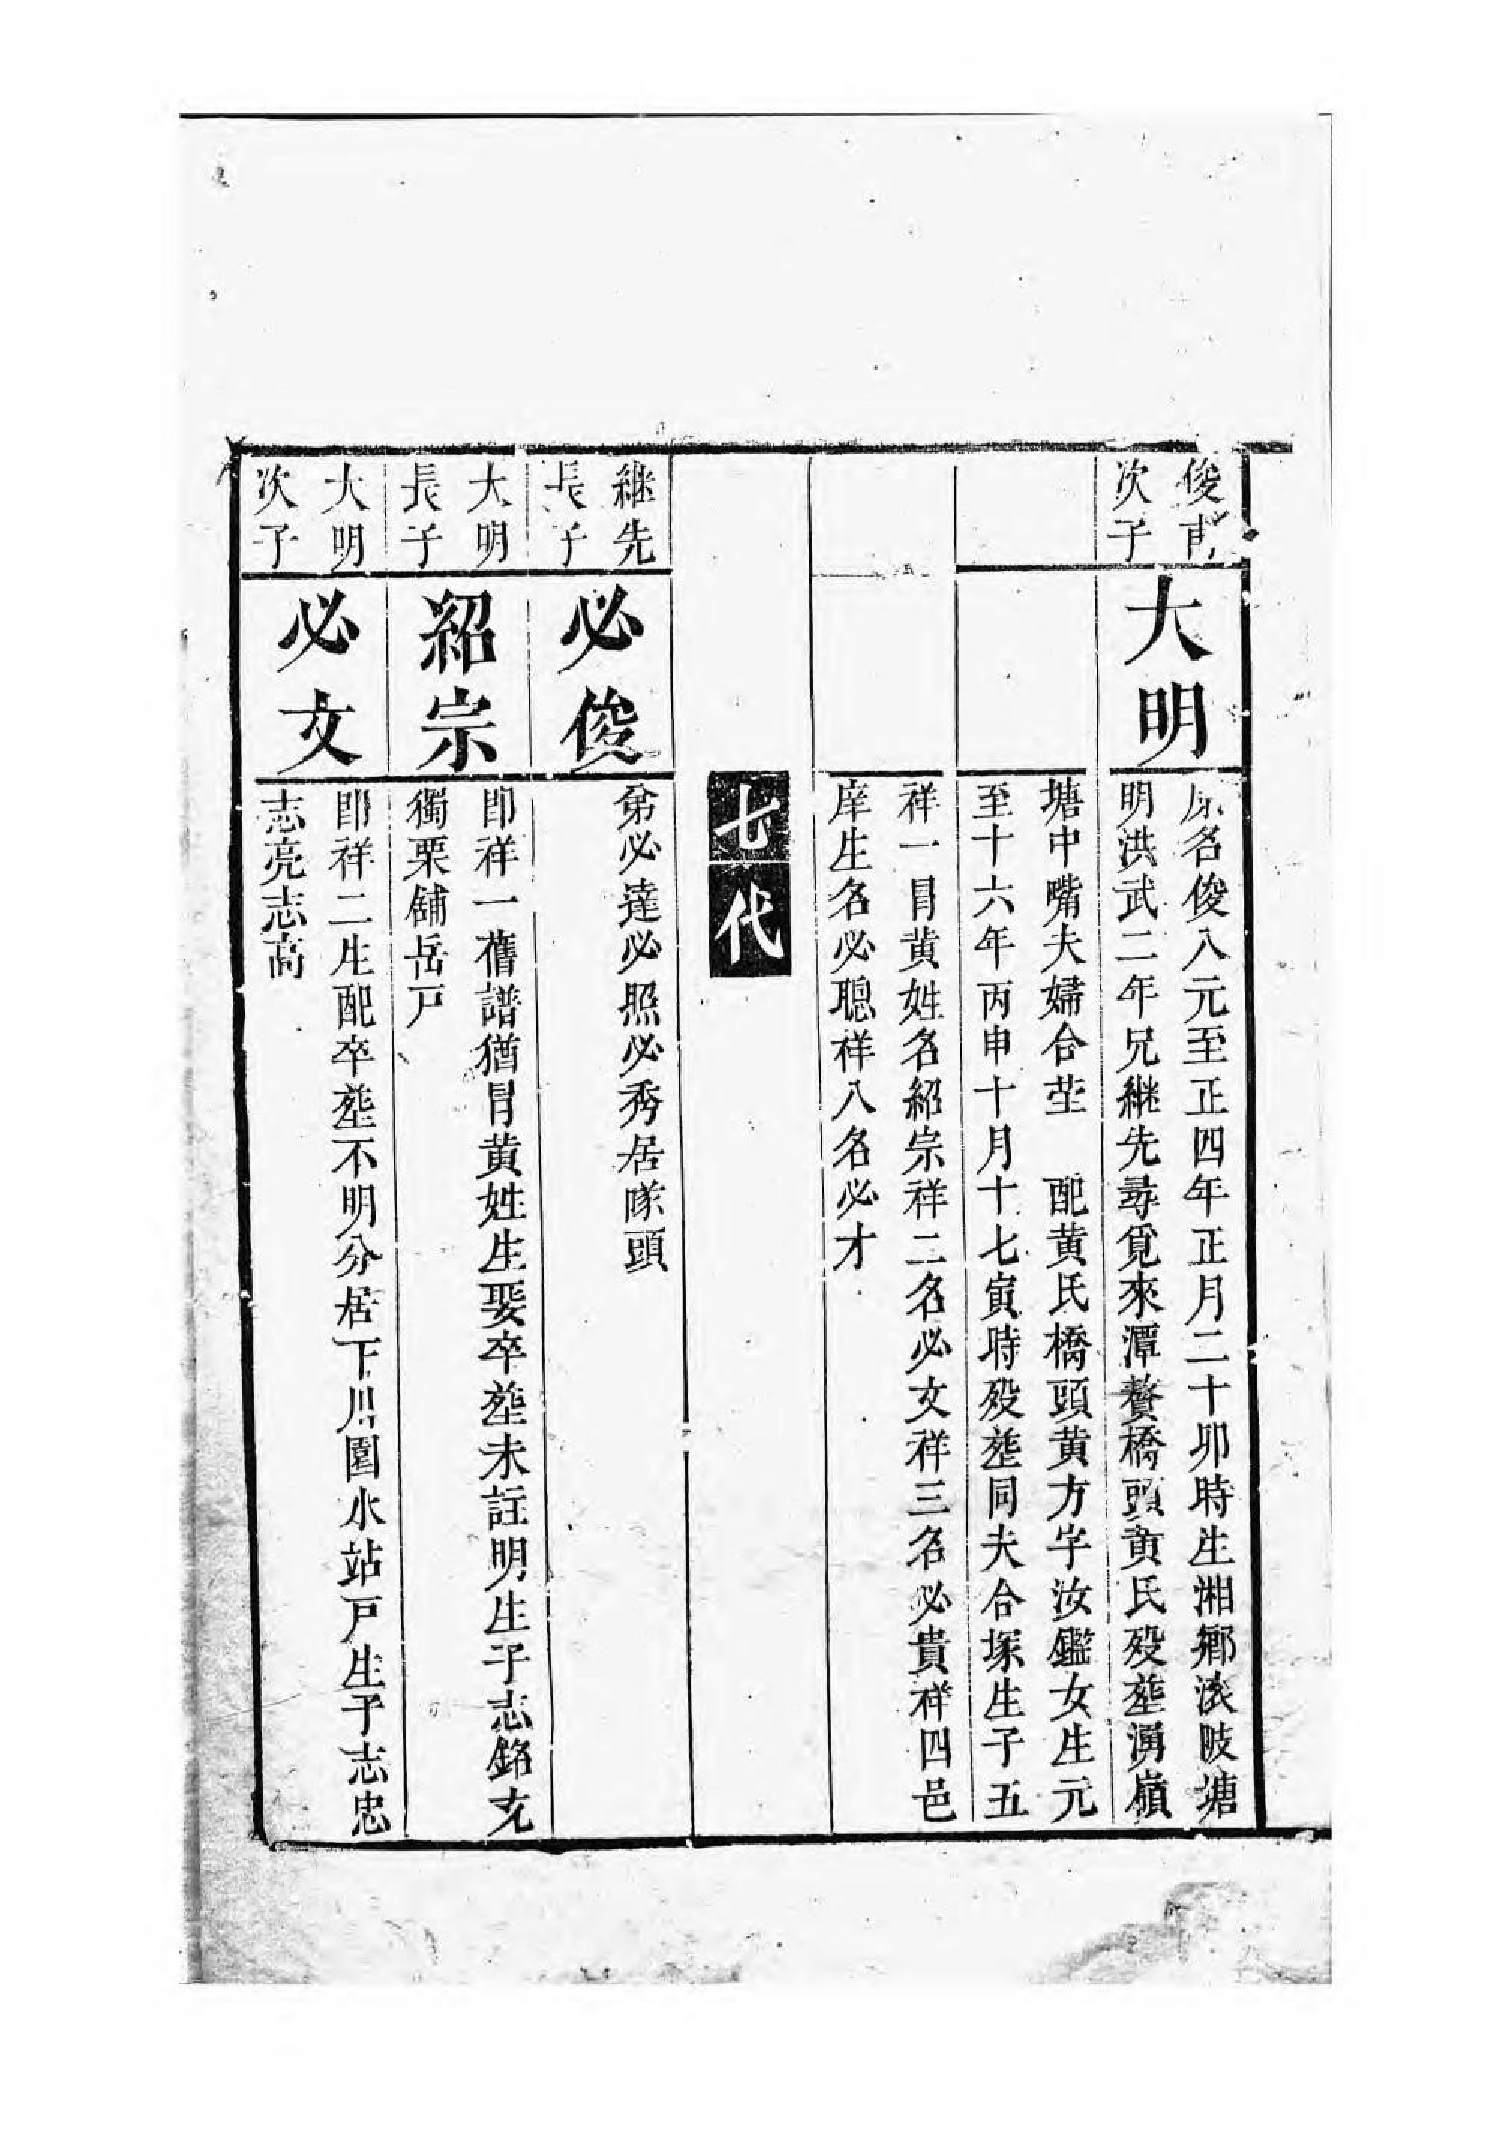 俊甫
次子
大明
原名俊八元至正四年正月二十卯時生湘鄉滾陂塘
明洪武二年兄継先尋覓來潭贅橋頭黄氏殁塟湧嶺
塘中嘴夫婦合茔　配黄氏橋頭黄方字汝鑑女生元
至十六年丙申十月十七寅時殁塟同夫合塚生子五
祥一冐黄姓名紹宗祥二名必文祥三名必貴祥四邑
庠生名必聰祥八名必才
七代
継先
長子
必俊
弟必達必照必秀居隊頭
大明
長子
紹宗
即祥一舊譜猶冐黄姓生娶卒塟未註明生子志銘充
獨栗舖岳戸
大明
次子
必文
即祥二生配卒塟不明分居下川園水站戸生子志忠
志亮志高